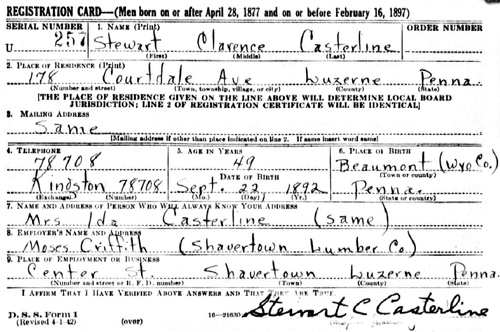 REGISTRATION CARD—(Men born on or after April 28, 1877 and on or before February 16, 1897)
SERIAL NUMBER 1. NAME (Print) ORDER NUMBER
U 257 Stewart Clarence Casterline
(First) (Middle) (Last)
2. PLACE OF RESIDENCE (Print)
178 Courtdale Ave Luzerne Penna
(Number and street) (Town, township, village, or city) (County) (State)
[THE PLACE OF RESIDENCE GIVEN ON THE LINE ABOVE WILL DETERMINE LOCAL BOARD
JURISDICTION; LINE 2 OF REGISTRATION CERTIFICATE WILL BE IDENTICAL]
3. MAILING ADDRESS
Same
[Mailing address if other than place indicated on line 2. If same insert word same]
4. TELEPHONE 5. AGE IN YEARS 6. PLACE OF BIRTH
78708 49 Beaumont (Wyo. Co.)
DATE OF BIRTH (Town or county)
Kingston 78708 Sept. 22 1892 Penna.
(Exchange) (Number) (Mo.) (Day) (Yr.) (State or country)
7. NAME AND ADDRESS OF PERSON WHO WILL ALWAYS KNOW YOUR ADDRESS
Mrs. Ida Casterline (same)
8. EMPLOYER'S NAME AND ADDRESS
Moses Griffith (Shavertown Lumber Co)
9. PLACE OF EMPLOYMENT OR BUSINESS
Center St. Shavertown Luzerne Penna.
(Number and street or R. F. D. number) (Town) (County) (State)
I AFFIRM THAT I HAVE VERIFIED ABOVE ANSWERS AND THAT THEY ARE TRUE.
D. S. S. Form 1
(Revised 4-1-42) (over) 16—21630 Stewart C Casterline